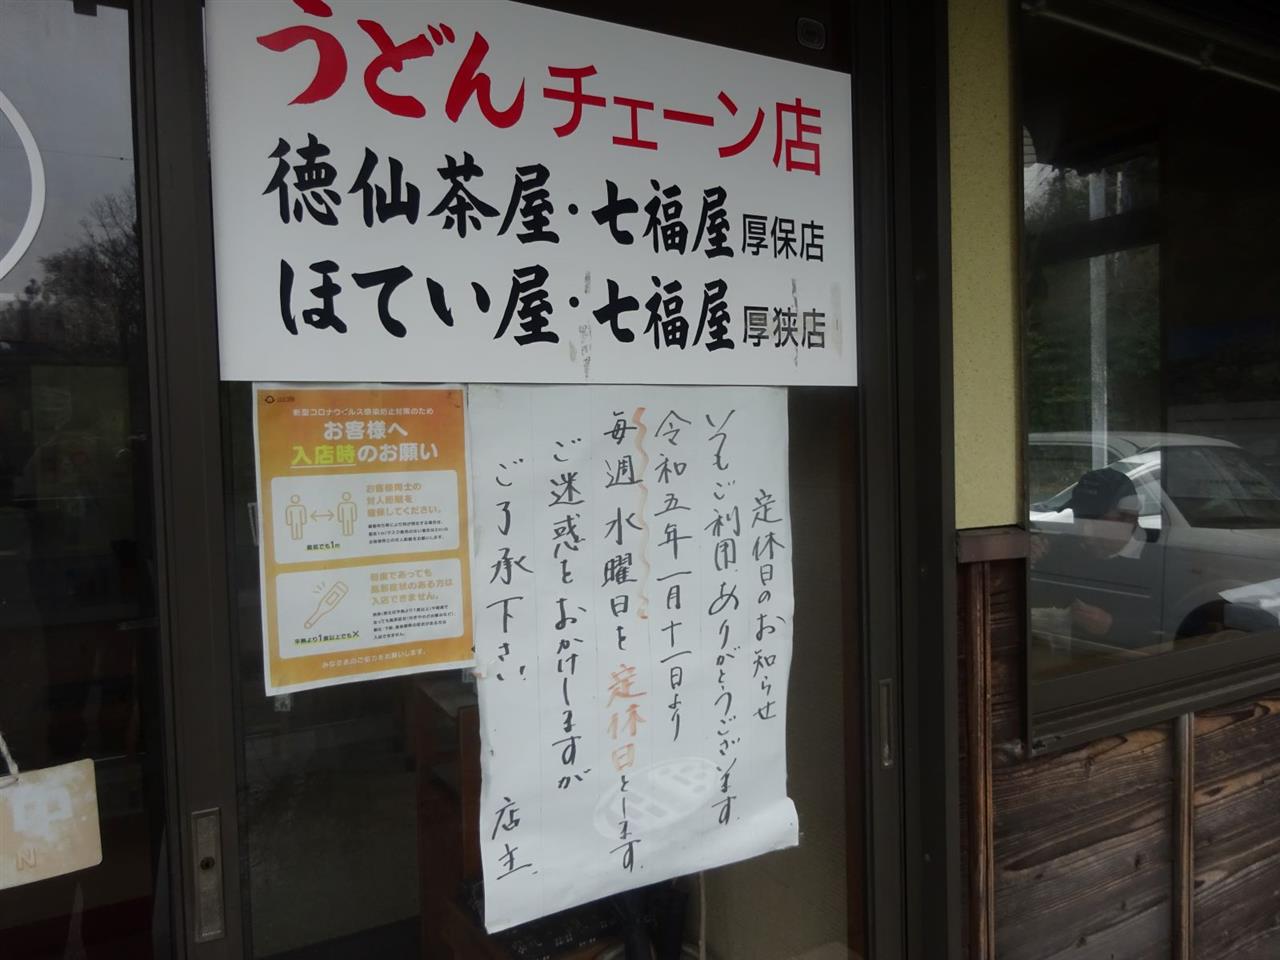 うどんチェーン店
徳仙茶屋・七福屋厚保店
ほてい屋・七福屋厚狭店
新型コロナウイルス感染防止対策のため
お客様へ
入店時のお願い
お客様同士の
対人距離を
確保してください。
最低でも1m
軽度であっても
風邪症状のある方は
入店できません。
平熱より1度以上でも×
みなさまのご協力をお願いします。
定休日のお知らせ
いつもご利用ありがとうございます
令和五年一月十一日より
毎週水曜日を定休日とします
ご迷惑をおかけしますが
ご了承下さい
店主
中
N